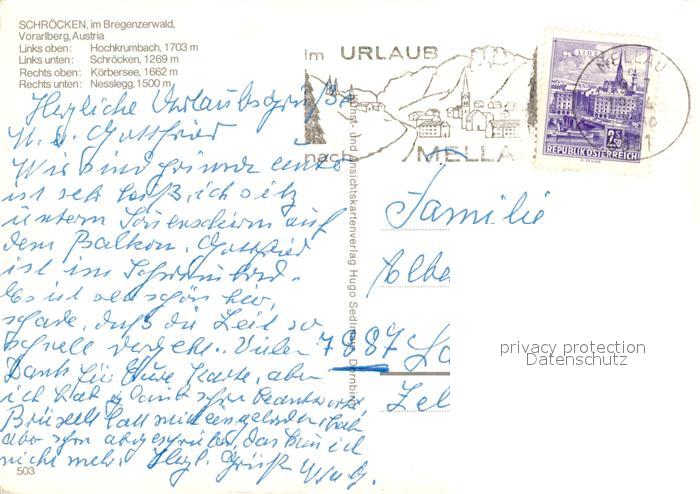 SCHRÖCKEN, im Bregenzerwald,
Vorarlberg, Austria
Links oben: Hochkrumbach, 1703 m
Links unten: Schröcken, 1269 m
Rechts oben: Körbersee, 1662 m
Rechts unten: Nesslegg, 1500 m
im URLAUB
nach MELLA
MELLAU
LINZ
2.50
REPUBLIK ÖSTERREICH
Kunst- und Ansichtskartenverlag Hugo Sedlmayr, Dornbirn
Herzliche Urlaubsgrüße
u. Gottfried
Wir sind
ist sehr heiß, ich sitz
unterm Sonnenschirm auf
dem Balkon. Gottfried
ist im Schwimmbad.
Es ist sehr schön hier,
schade, daß die Zeit so
schnell vergeht. Vielen
Dank für Eure Karte, aber
ich
Brüssel
aber schon abgeschrieben, das kann ich
nicht mehr. Hzgl. Grüße
Familie
Albe
7887 La
503
privacy protection
Datenschutz